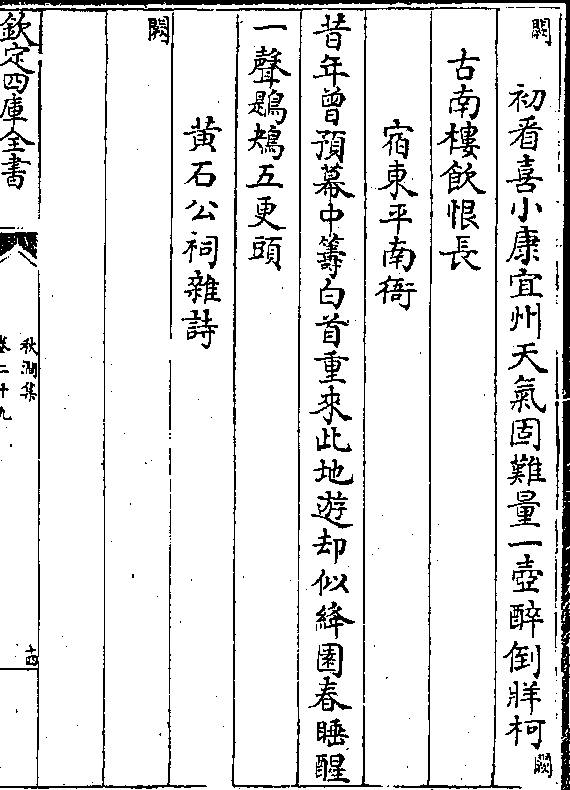 闕
初看喜小康宜州天氣固難量一壺醉倒牂柯闕
古南樓飲恨長
宿東平南衙
昔年曾預幕中籌白首重來此地遊却似絳園春睡醒
一聲鶗鴂五更頭
黄石公祠雜詩
闕
欽定四庫全書
秋澗集
卷二十九
十四